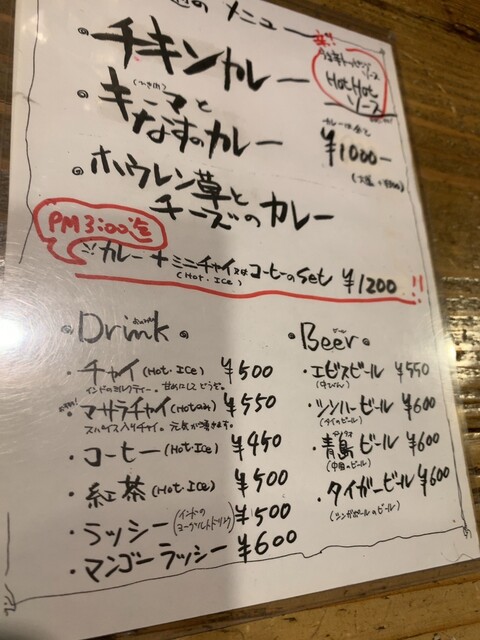 のメニュー
・チキンカレー
HotHot
ソース
・キーマと
なすのカレー
カレーは全て
¥1000-
・ホウレン草と
チーズのカレー
PM3:00迄
※カレー+ミニチャイ又はコーヒーのset ¥1200!!
(Hot・Ice)
・Drink・
・チャイ(Hot・Ice) ¥500
インドのミルクティー。甘めにしてどうぞ。
・マサラチャイ(Hotのみ) ¥550
スパイス入りチャイ。元気が湧きます。
・コーヒー(Hot・Ice) ¥450
・紅茶(Hot・Ice) ¥500
・ラッシー(インドのヨーグルトドリンク) ¥500
・マンゴーラッシー ¥600
・Beer・
ビール
・エビスビール ¥550
(中びん)
・シンハービール ¥600
(タイのビール)
・青島ビール ¥600
チンタオ
(中国のビール)
・タイガービール ¥600
(シンガポールのビール)